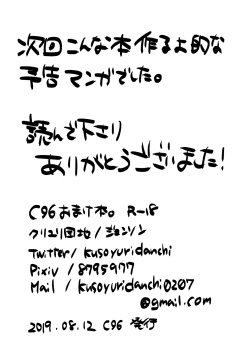 次回こんな本作るよ的な
予告マンガでした。
読んで下さり
ありがとうございました!
C96おまけ本。 R-18
クソユリ団地/ジョンソン
Twitter/ kusoyuridanchi
Pixiv / 8795977
Mail / kusoyuridanchi0207
@gmail.com
2019.08.12 C96 発行